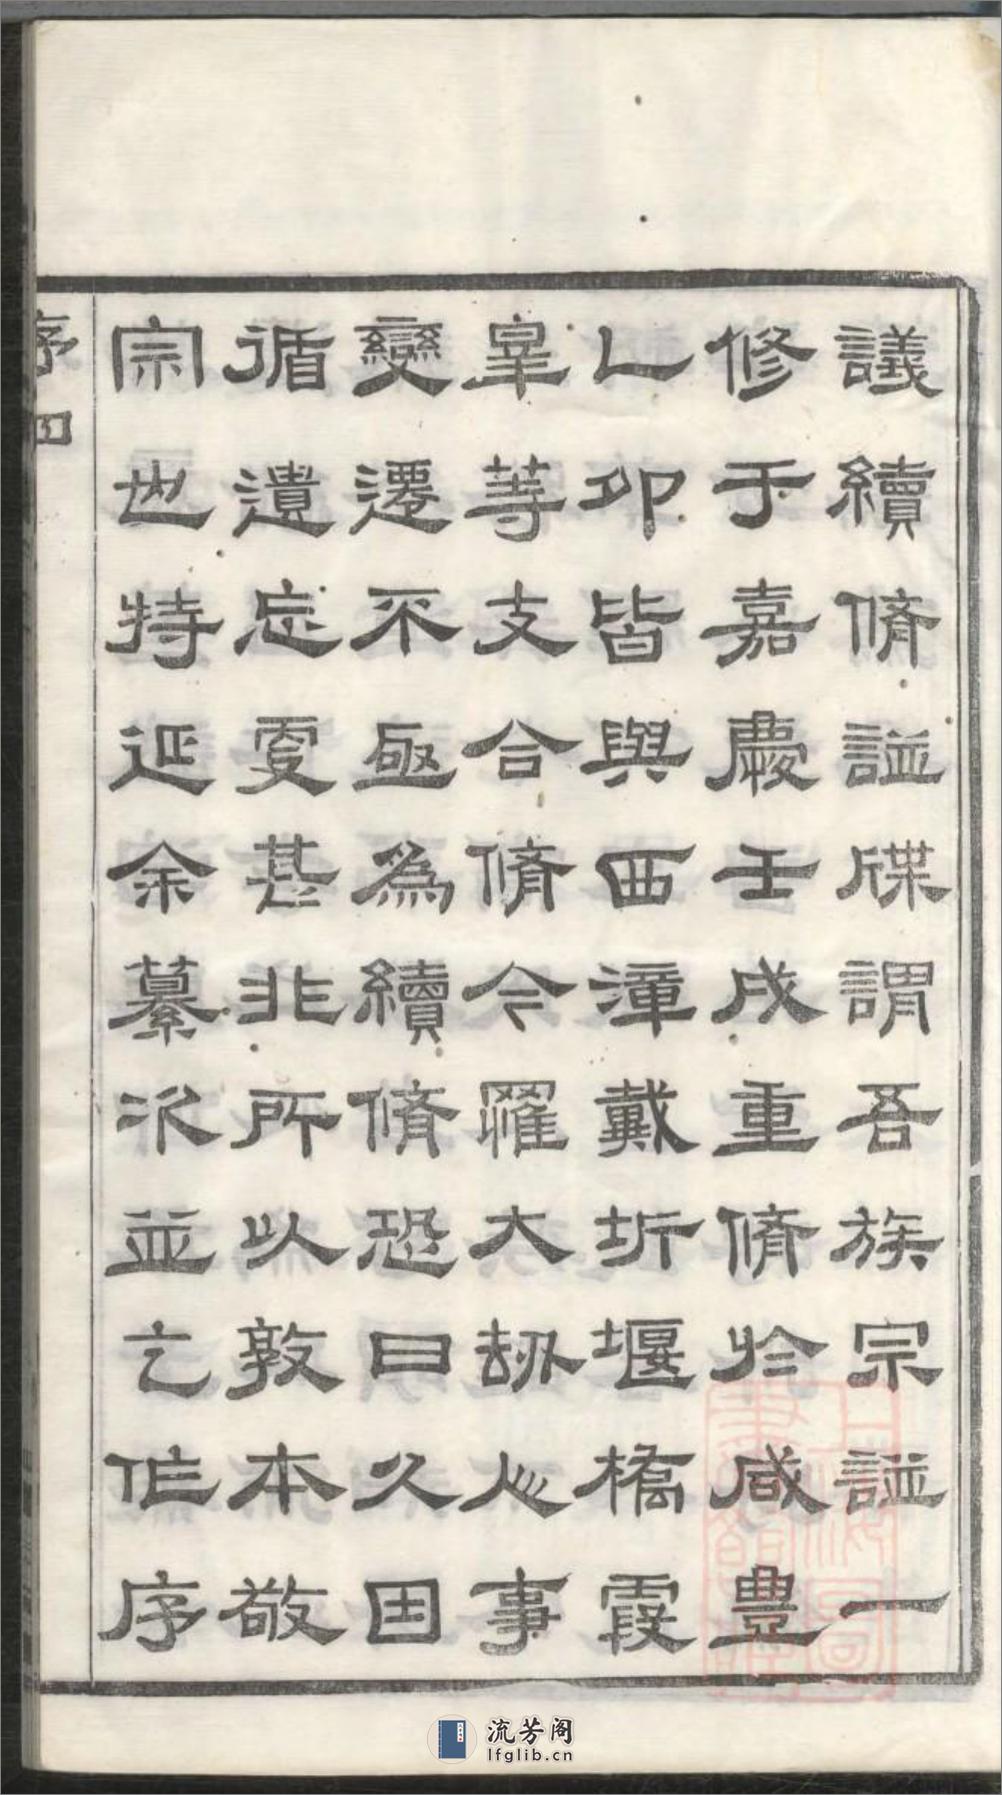 議續脩諡牒謂吾族宗諡一
修于嘉慶壬戌重脩於咸豊
乙卯皆與西漳戴圻堰橋霞
皐等支合脩今罹大刼人事
變遷不亟為續脩恐日久因
循遺忘更甚非所以敦本敬
宗也持延余纂次並乞作序
序 四
流芳阁
lfglib.cn